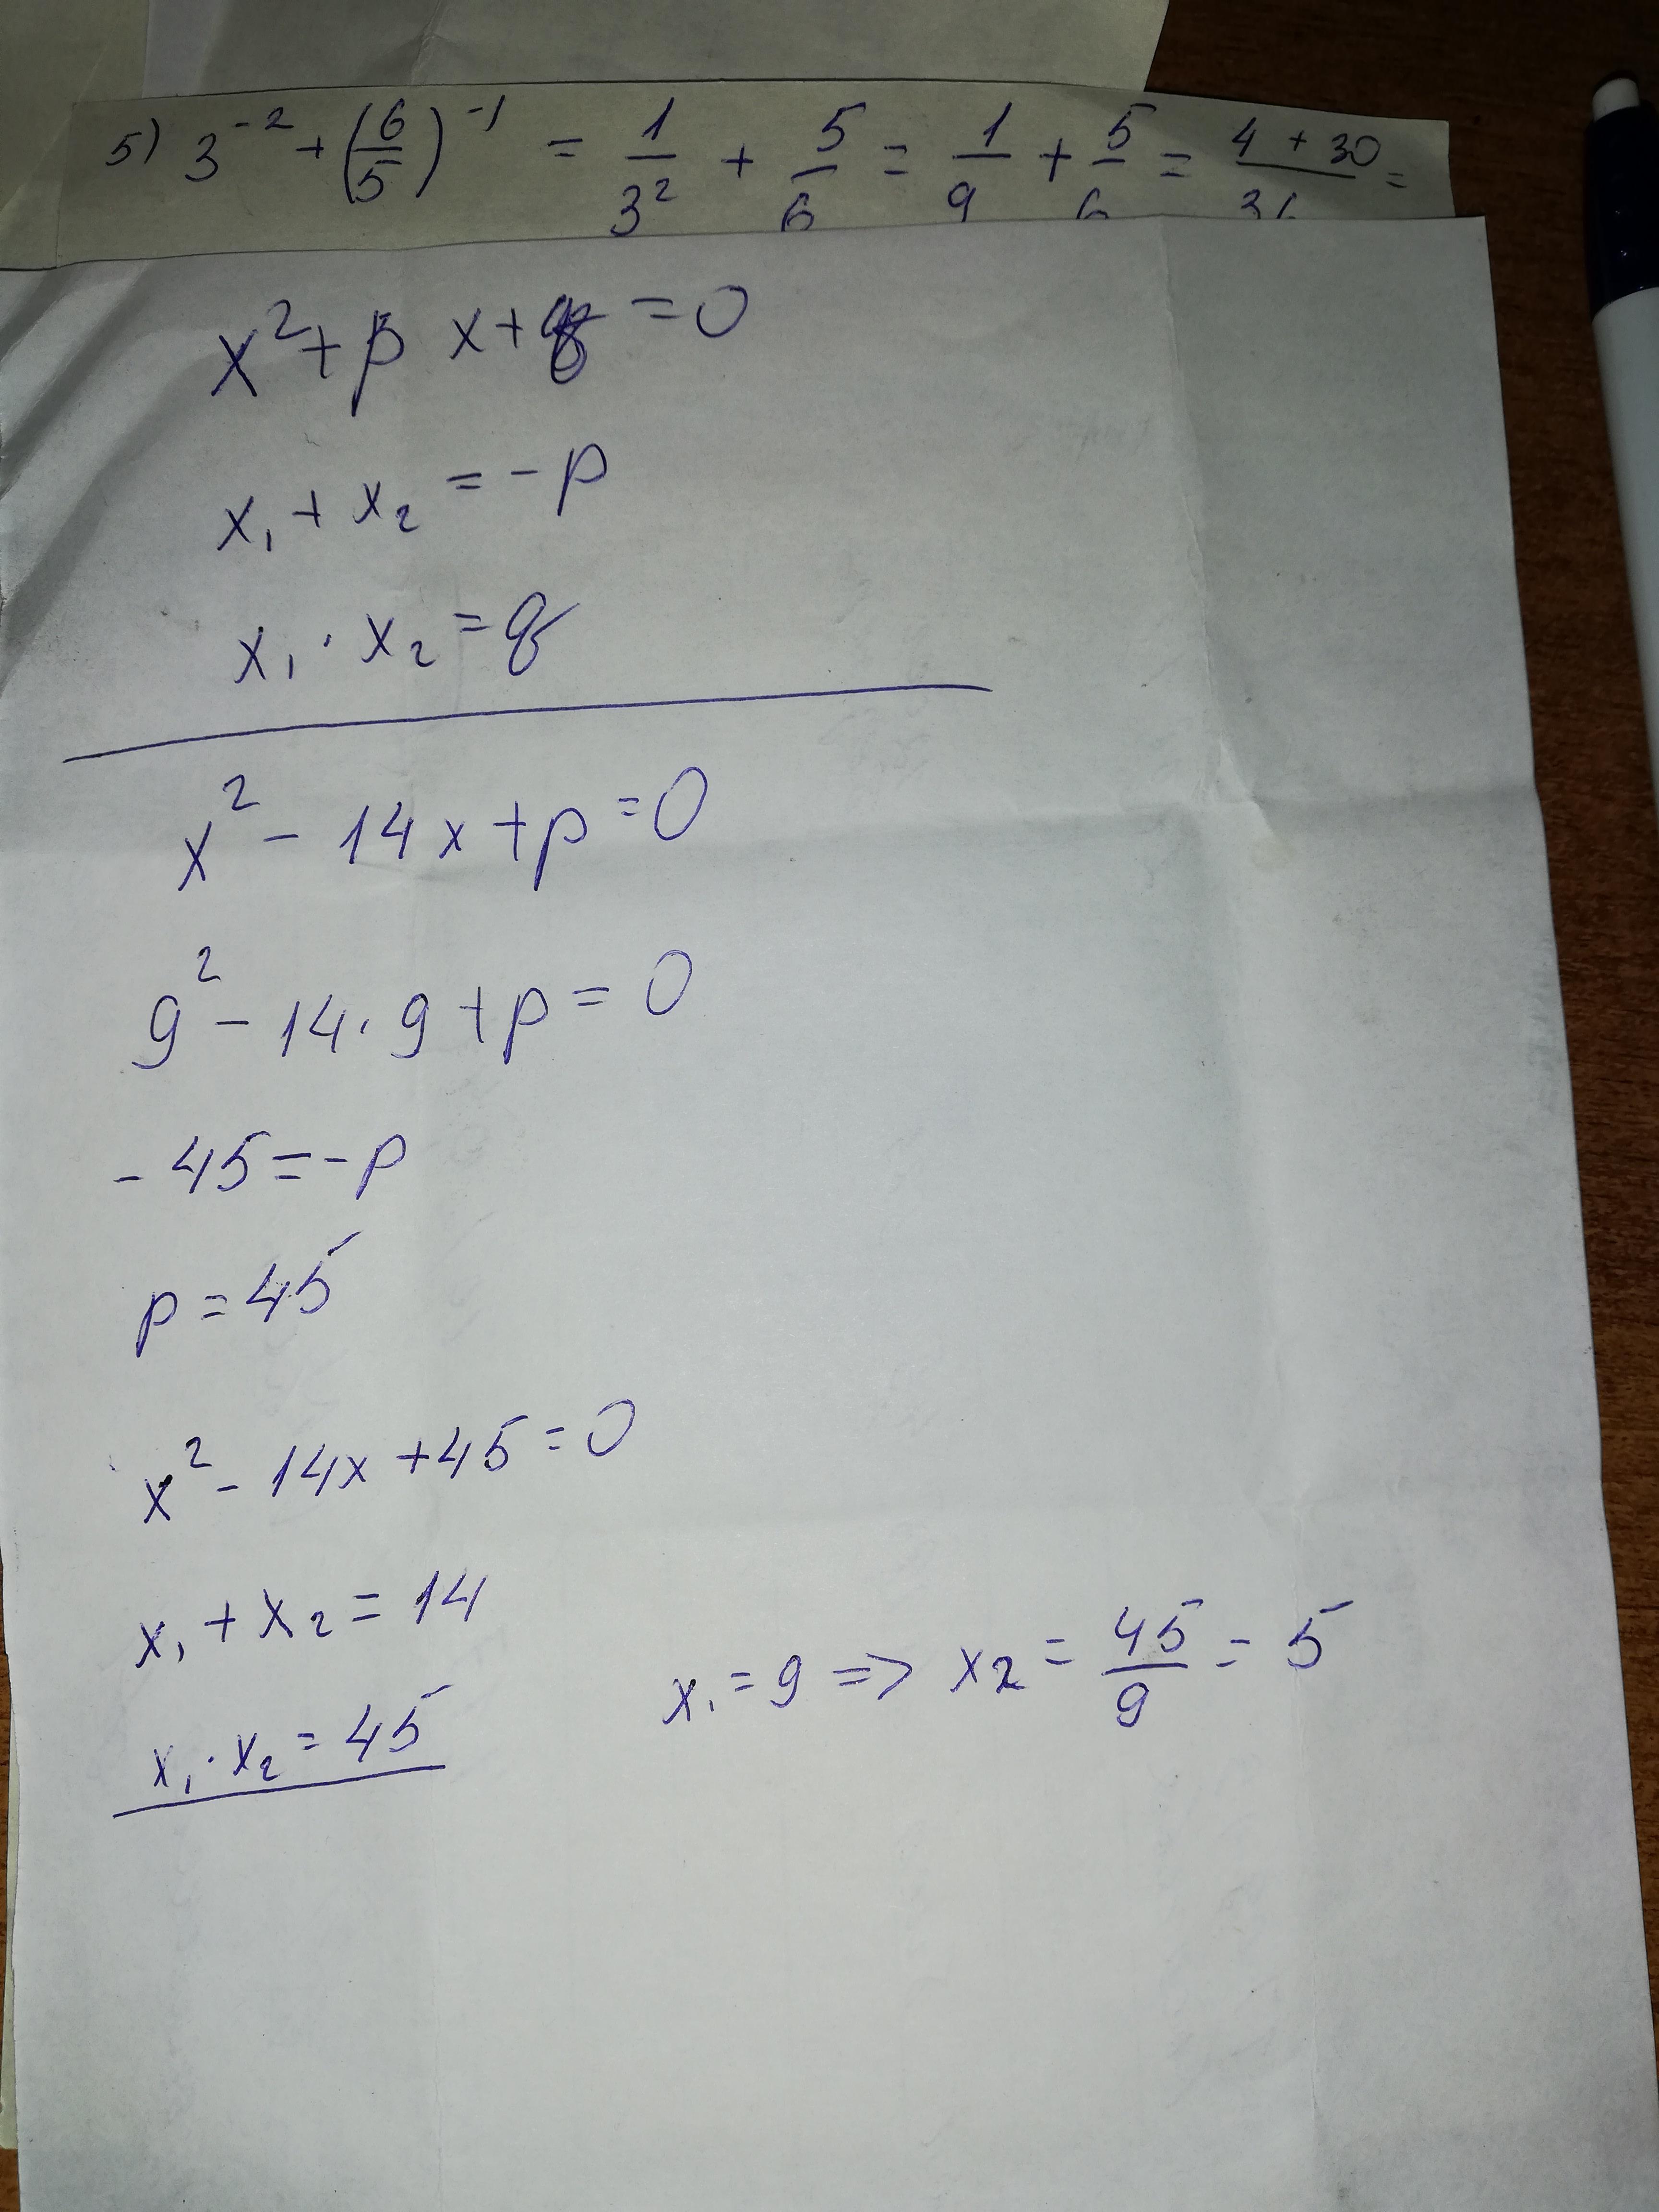 5) 3^-2 + (6/5)^-1 = 1/3^2 + 5/6 = 1/9 + 5/6 = 4 + 30/36 =
x^2 + p x + q = 0
x₁ + x₂ = - p
x₁ · x₂ = q
x^2 - 14x + p = 0
9^2 - 14 · 9 + p = 0
- 45 = - p
p = 45
x^2 - 14x + 45 = 0
x₁ + x₂ = 14
x₁ · x₂ = 45
x₁ = 9 => x₂ = 45/9 = 5